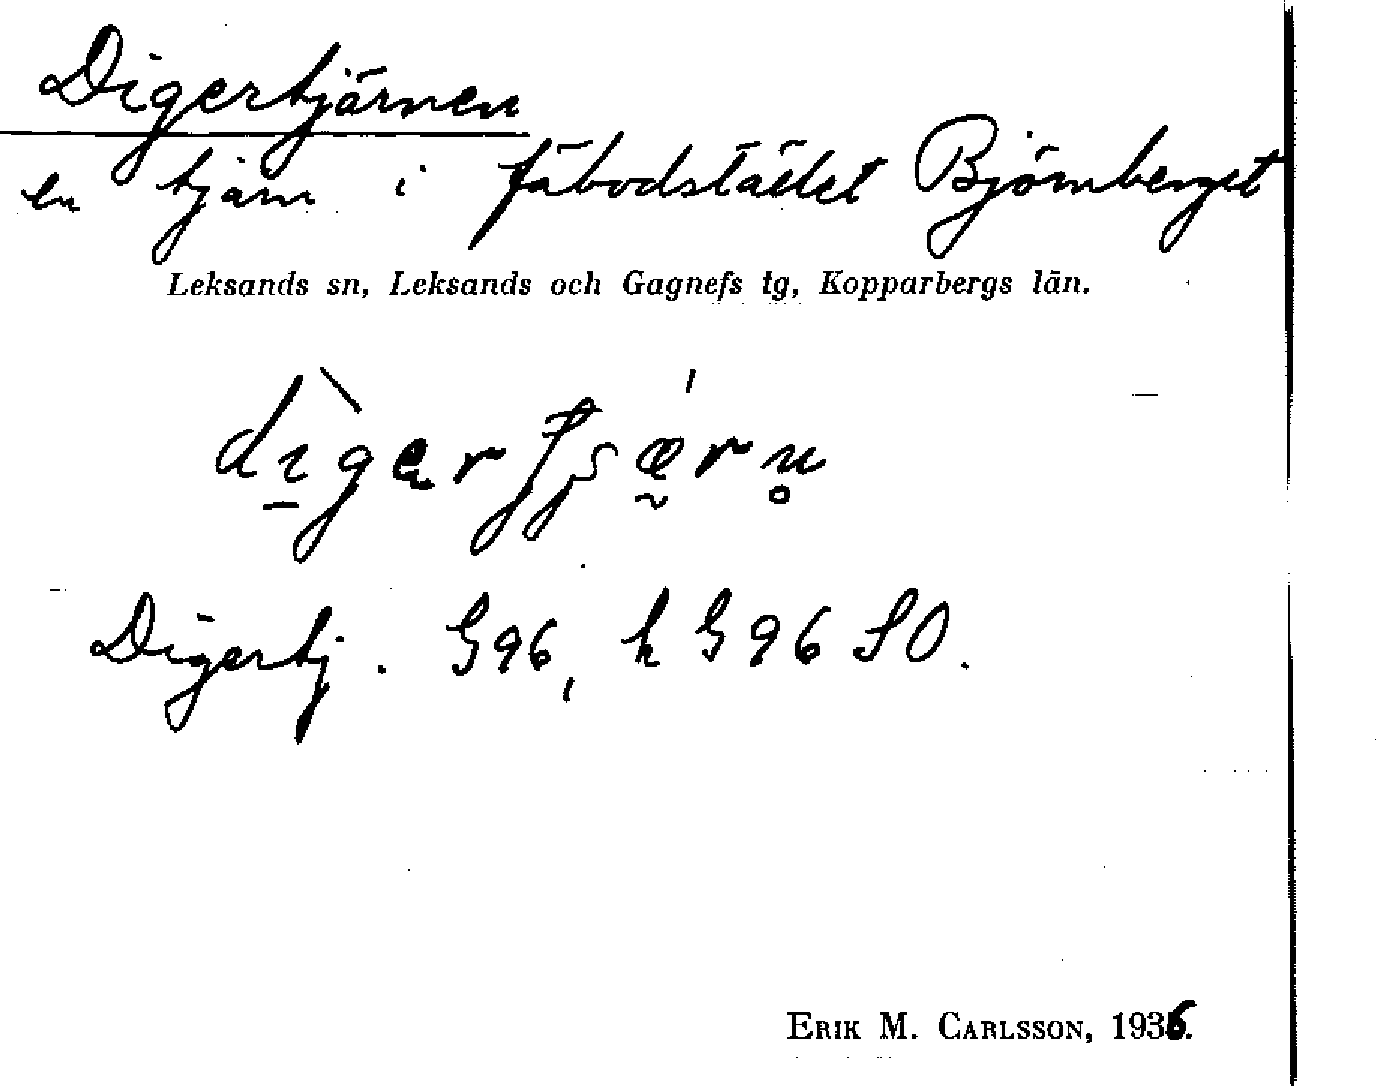 Digertjärnen
en tjärn i fäbodstället Björnberget
Leksands sn, Leksands och Gagnefs tg, Kopparbergs län.
Digertj. G96, k G96 SO.
ERIK M. CARLSSON, 1936.